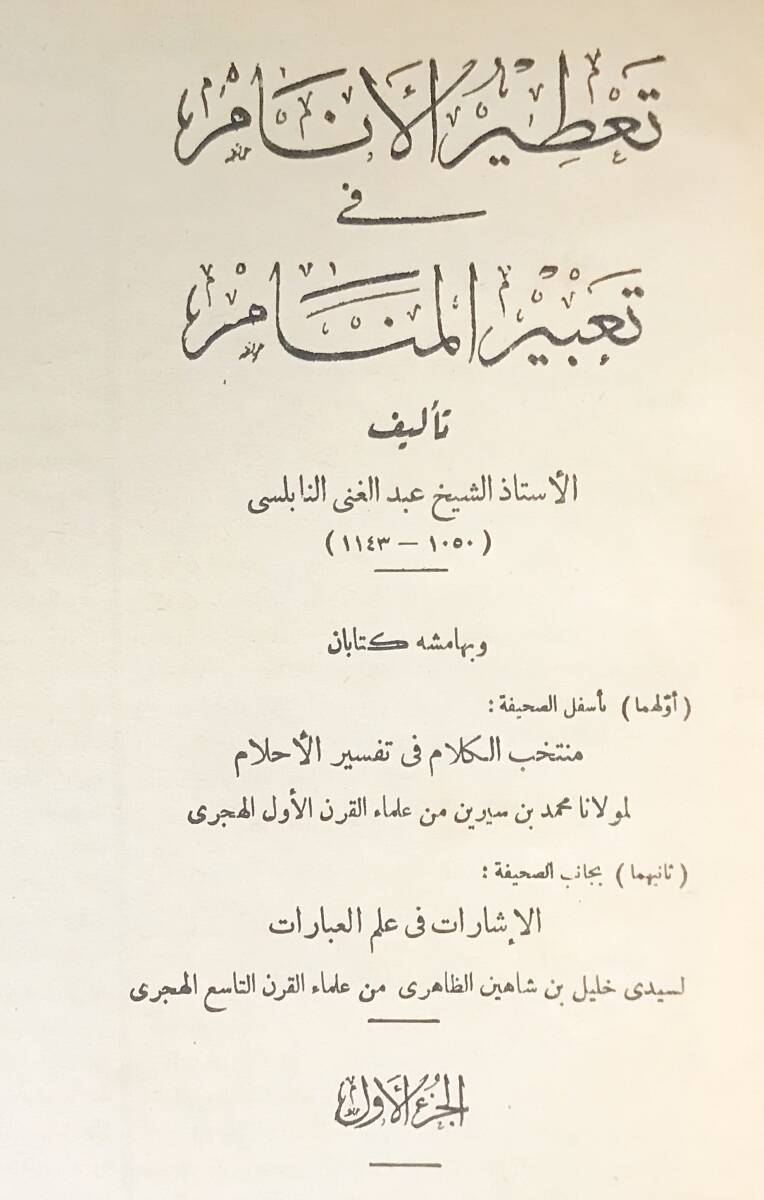 تعطير الأنام
فى
تعبير المنام
تأليف
الأستاذ الشيخ عبد الغنى النابلسى
( ١٠٥٠ — ١١٤٣ )
وبهامشه كتابان
( أوّلهما ) بأسفل الصحيفة :
منتخب الكلام فى تفسير الأحلام
لمولانا محمد بن سيرين من علماء القرن الأول الهجرى
( ثانيهما ) بجانب الصحيفة :
الإشارات فى علم العبارات
لسيدى خليل بن شاهين الظاهرى من علماء القرن التاسع الهجرى
الجزء الأول